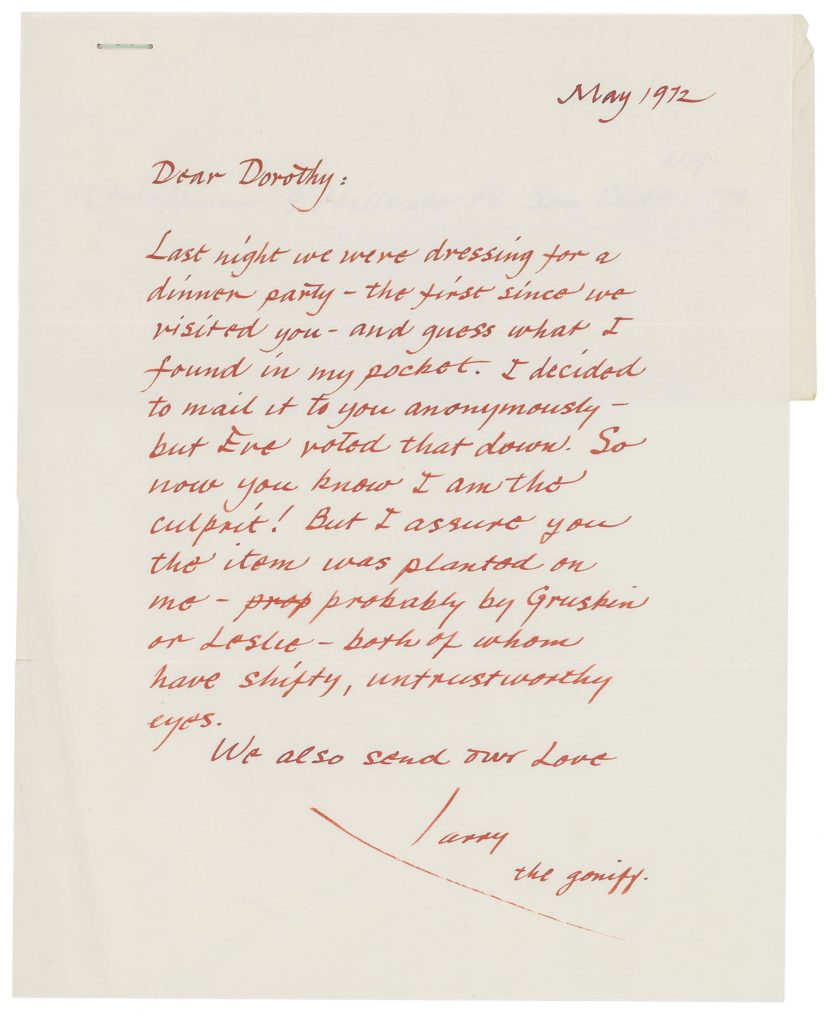 May 1972
Dear Dorothy:
Last night we were dressing for a
dinner party - the first since we
visited you - and guess what I
found in my pocket. I decided
to mail it to you anonymously -
but Eve voted that down. So
now you know I am the
culprit! But I assure you
the item was planted on
me - prop probably by Gruskin
or Leslie - both of whom
have shifty, untrustworthy
eyes.
We also send our Love
Larry
the goniff.